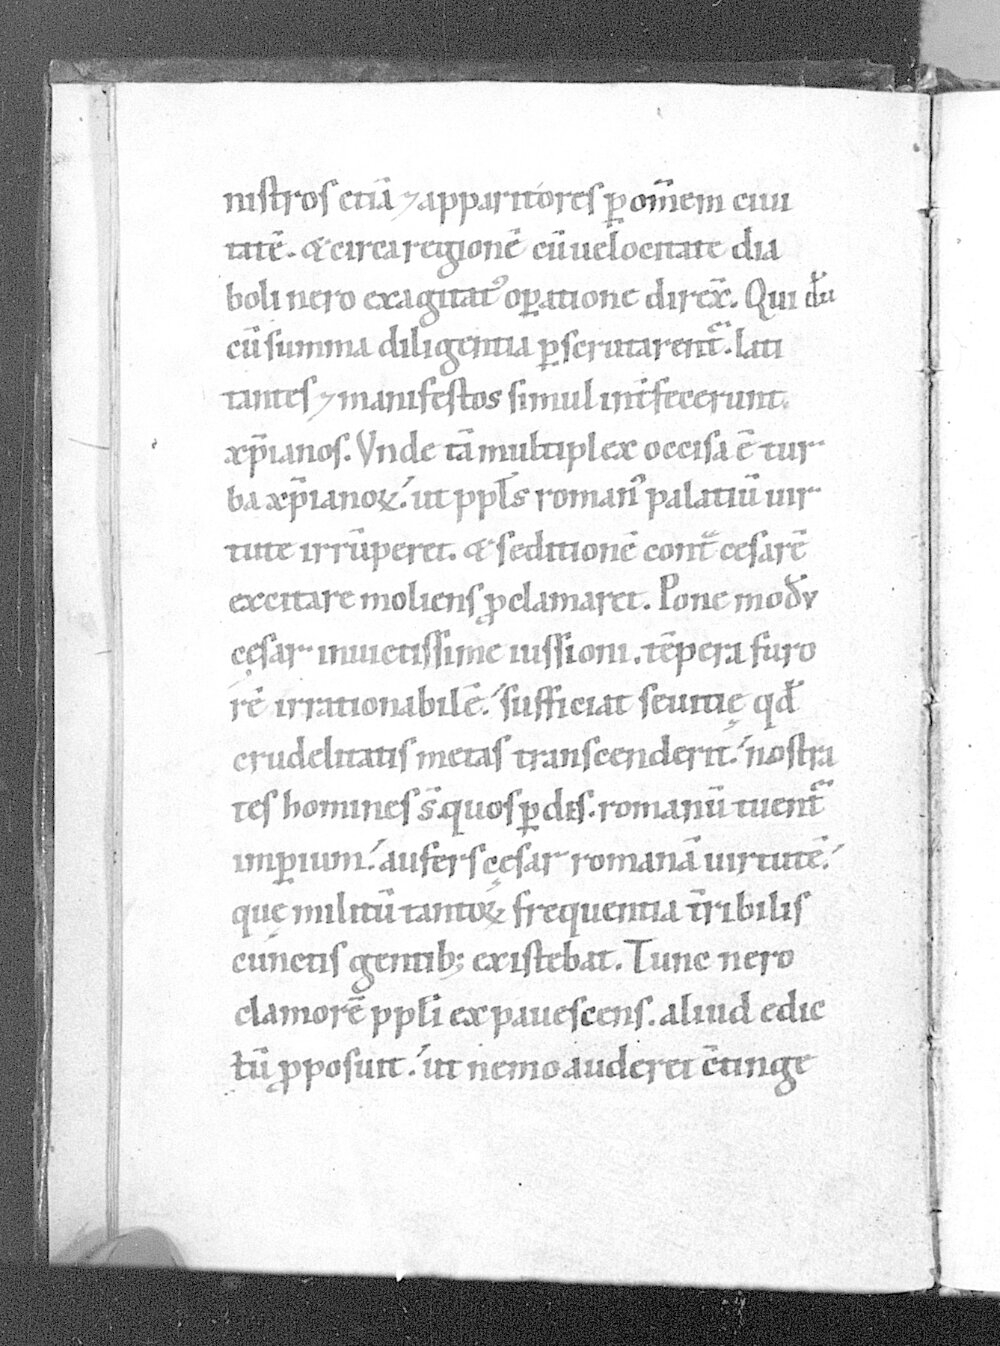 nistros etiā ⁊ apparitores ꝑ om̄em ciui
tatē. & circa regionē cū uelocitate dia
boli nero exagitatꝰ oꝑatione direx̄. Qui dū
cū summa diligentia ꝑscrutarent᷑. lati
tantes ⁊ manifestos simul int̄fecerunt
xp̄ianos. Vnde tā multiplex occisa ē tur
ba xp̄ianoꝝ. ut ppl̄s romanꝰ palatiū uir
tute irrūperet. & seditionē cont̄ cesarē
excitare moliens ꝓclamaret. Pone modū
cęsar inuictissime iussioni. tēpera furo
rē irrationabilē. sufficiat seuitię qd̄
crudelitatis metas transcenderit. nostra
tes homines s̄. quos ꝑdis. romanū tuent᷑
imꝑium. aufers cęsar romanā uirtutē.
quę militū tantoꝝ frequentia t̄ribilis
cunctis gentib; existebat. Tunc nero
clamorē ppl̄i expauescens. aliud edic
tū ꝓposuit. ut nemo auderet c̄tinge